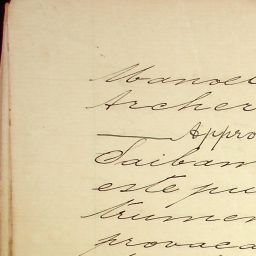 Manoel
Archer
— Appro
Saibam
este pu
trumen
provaca